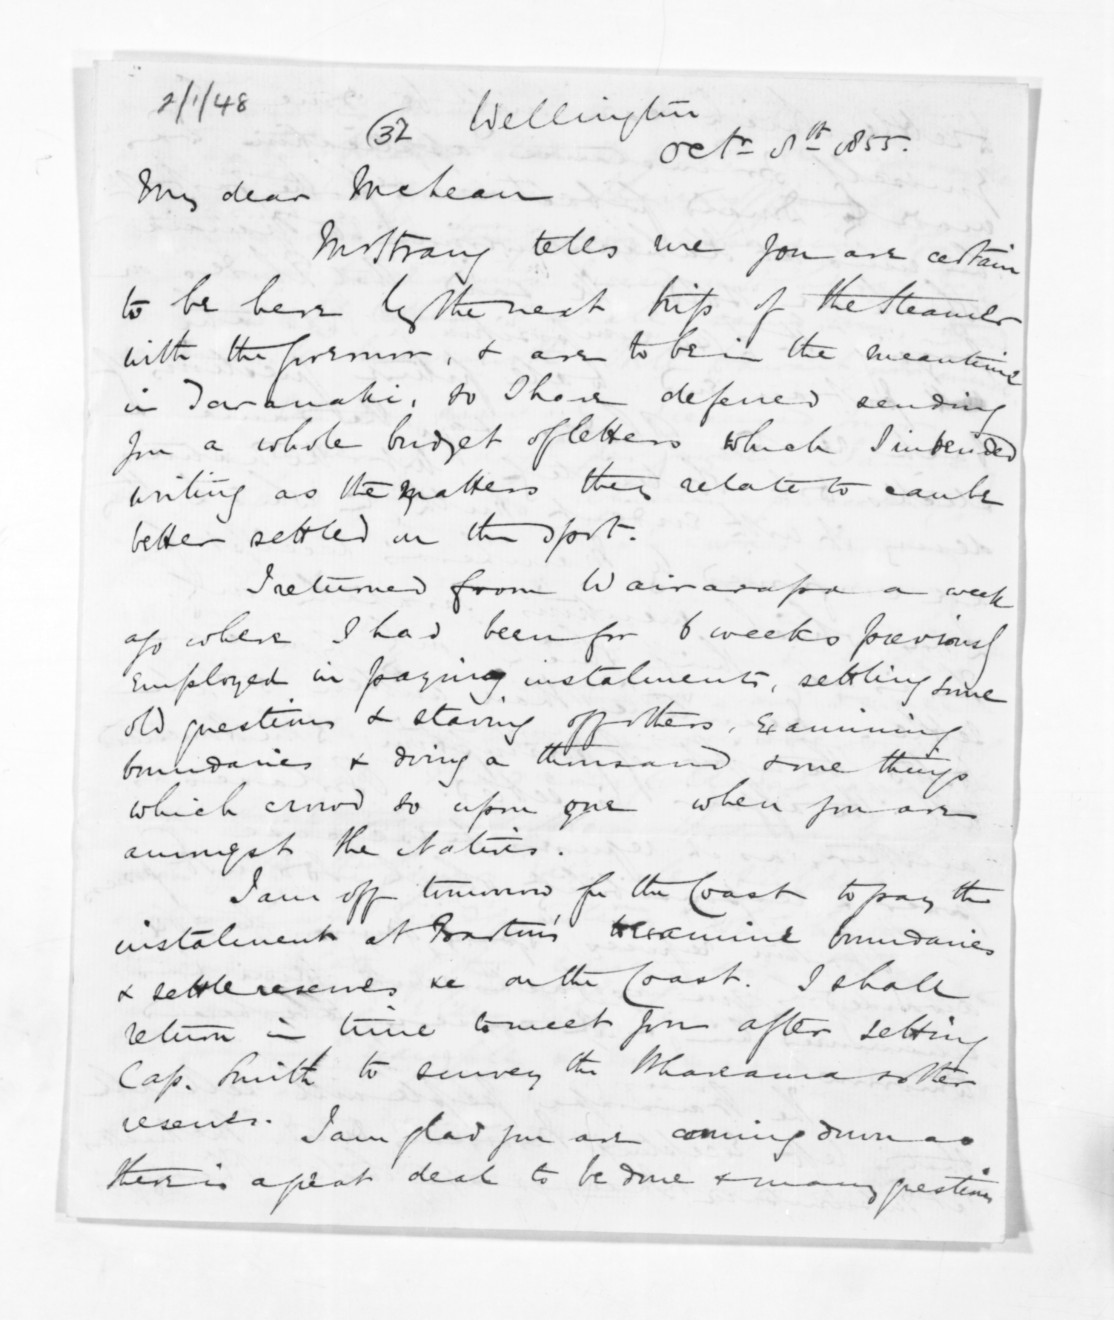 2/1/48
(32
Wellington
Octr 8th 1855.
My dear McLean
Mr Strang tells me you are certain
to be here by the next trip of the Steamer
with the Governor, & are to be in the meantime
in Taranaki, so I have deferred sending
you a whole budget of letters which I intended
writing as the matters they relate to can be
better settled on the spot.
I returned from Wairarapa a week
ago where I had been for 6 weeks previously
employed in paying instalments, settling some
old questions & staving off others, examining
boundaries & doing a thousand & one things
which crowd so upon one when you are
amongst the Natives.
I am off tomorrow for the Coast to pay the
instalment at examine boundaries
& settle reserves &c on the Coast. I shall
return in time to meet you after setting
Cap. Smith to survey the Whareama & other
reserves.
I am glad you are coming down as
there is a great deal to be done & many questions